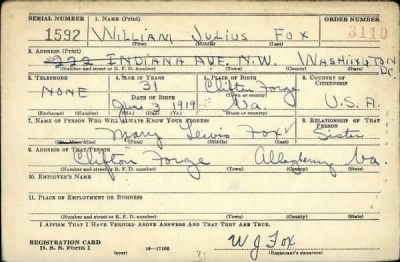 SERIAL NUMBER 1. NAME (Print) ORDER NUMBER
1592 WILLIAM JULIUS FOX 3110
(First) (Middle) (Last)
2. ADDRESS (Print)
222 INDIANA AVE. N.W. WASHINGTON DC.
(Number and street or R. F. D. number) (Town) (County) (State)
3. TELEPHONE 4. AGE IN YEARS 5. PLACE OF BIRTH 6. COUNTRY OF CITIZENSHIP
NONE 31 Clifton Forge
DATE OF BIRTH (Town or county)
3 1919 Va. U.S.A.
(Exchange) (Number) (Mo.) (Day) (Yr.) (State or country)
7. NAME OF PERSON WHO WILL ALWAYS KNOW YOUR ADDRESS 8. RELATIONSHIP OF THAT PERSON
Mary Lewis Fox Sister
(Mr., Mrs., Miss) (First) (Middle) (Last)
9. ADDRESS OF THAT PERSON
Clifton Forge Alleghany Va.
(Number and street or R. F. D. number) (Town) (County) (State)
10. EMPLOYER'S NAME
11. PLACE OF EMPLOYMENT OR BUSINESS
(Number and street or R. F. D. number) (Town) (County) (State)
I AFFIRM THAT I HAVE VERIFIED ABOVE ANSWERS AND THAT THEY ARE TRUE.
REGISTRATION CARD W J Fox
D. S. S. Form 1 (over) 16—17105 (Registrant's signature)